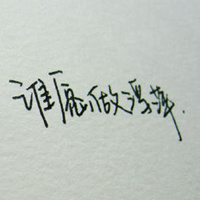 谁愿做浮萍.